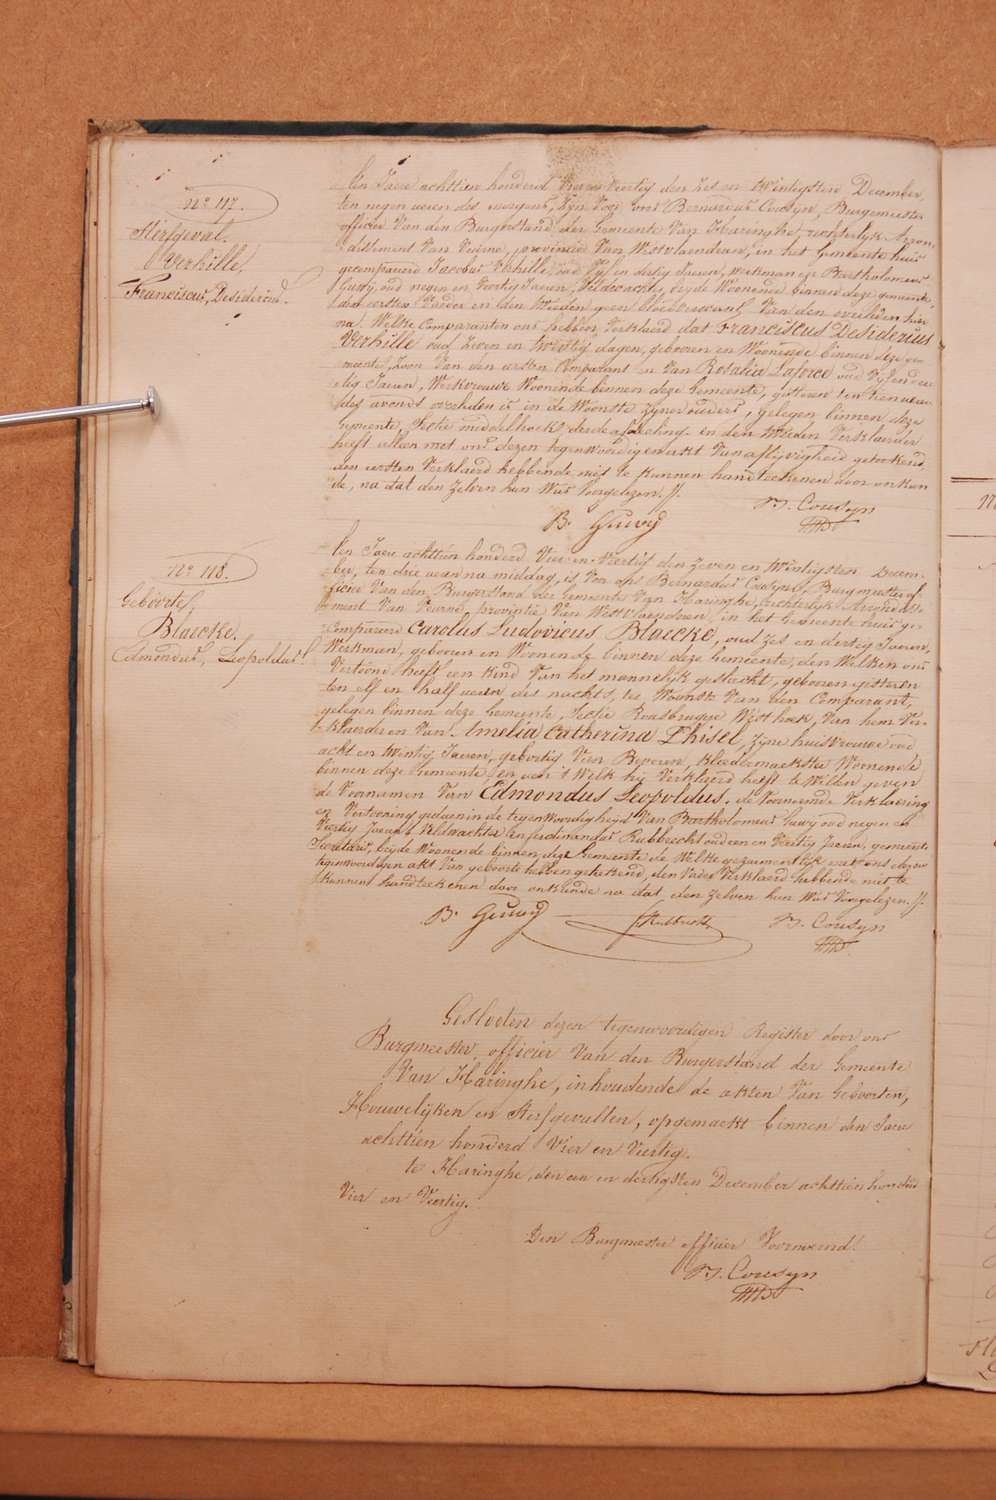 No 117.
Sterfgeval.
Verhille,
Franciscus, Desiderius.
Ten Jaere achttien honderd vier en veertig den zes en twintigsten December
ten negen ueren des morgens, zyn voor ons Bernardus Cousyn, Burgmeester
officier Van den Burgerstand der Gemeente Van Haringhe, rechterlyk Arron-
dissement Van Veurne, provincie Van Westvlaenderen, in het Gemeente huis
gecompareerd Jacobus Verhille, oud Vyf en dertig Jaeren, werkman en Bartholomeus
Guwy, oud negen en Veertig Jaeren, Veldwachter, beyde Woonende binnen deze gemeente,
den eersten Vader en den tweeden geen bloedverwant Van den overleden hier
na. Welke Comparanten ons hebben Verklaerd dat Franciscus Desiderius
Verhille oud zeven en twintig dagen, gebooren en Woonende binnen deze ge-
meente, Zoon Van den eersten Comparant en Van Rosalia Laforce oud Vyf en der
tig Jaeren, Werkvrouwe Woonende binnen deze Gemeente, gisteren ten tien ueren
des avonds overleden is in de Woonste zyner ouders, gelegen binnen deze
Gemeente, Sectie middelhoek derde afdeeling. en den tweeden Verklaerder
heeft alleen met ons dezen tegenwoordigen akt Van aflyvigheid geteekend,
den eersten Verklaerd hebbende niet te kunnen handteekenen door onkun
de, na dat den zelven hun Was Voorgelezen.
B. Guwy
B. Cousyn
No 118.
Geboorte,
Blaecke.
Edmondus, Leopoldus.
Ten Jaere achttien honderd Vier en Veertig den zeven en twintigsten Decem-
ber, ten drie ueren na middag, is, Voor ons Bernardus Cousyn, Burgmeester of-
ficier Van den Burgerstand der Gemeente Van Haringhe, rechterlyk Arrondisse-
ment Van Veurne, provintie Van Westvlaenderen, in het Gemeente huis ge-
compareerd Carolus Ludovicus Blaecke, oud zes en dertig Jaeren,
Werkman, gebooren en Woonende binnen deze Gemeente, den Welken ons
Vertoond heeft een kind Van het mannelyk geslacht, gebooren gisteren
ten elf en half ueren des nachts, ter Woonste Van den Comparant,
gelegen binnen deze Gemeente, Sectie Rousbrugge Westhoek, Van hem Ver-
klaerder en Van Amelia Catherina Thisel, Zyne huisvrouwe oud
acht en twintig Jaeren, geboortig Van Beveren, kleedermaekster Woonende
binnen deze Gemeente, en aen 't Welk hy Verklaerd heeft te Willen geven
de Voornamen Van Edmondus Leopoldus. de Voornoemde Verklaering
en Vertooning gedaen in de tegenwoordigheid Van Bartholomeus Guwy oud negen en
Veertig Jaeren, Veldwachter en Ferdinandus Rubbrecht oud een en Veertig Jaeren, gemeente
Secretaris, beyde Woonende binnen deze Gemeente de Welke gezaementlyk met ons dezen
tegenwoordigen akt Van geboorte hebben geteekend, den Vader Verklaerd hebbende niet te
kunnen handteekenen door onkunde na dat den zelven hun Was Voorgelezen.
B. Guwy
F. Rubbrecht
B. Cousyn
Gesloten dezen tegenwoordigen Register door ons
Burgmeester, officier Van den Burgerstand der Gemeente
Van Haringhe, inhoudende de akten Van Geboorten,
Houwelyken en Sterfgevallen, opgemaekt binnen den Jaere
achttien honderd Vier en Veertig.
te Haringhe, den een en dertigsten December achttien honderd
Vier en Veertig.
Den Burgmeester officier Voornoemd.
B. Cousyn